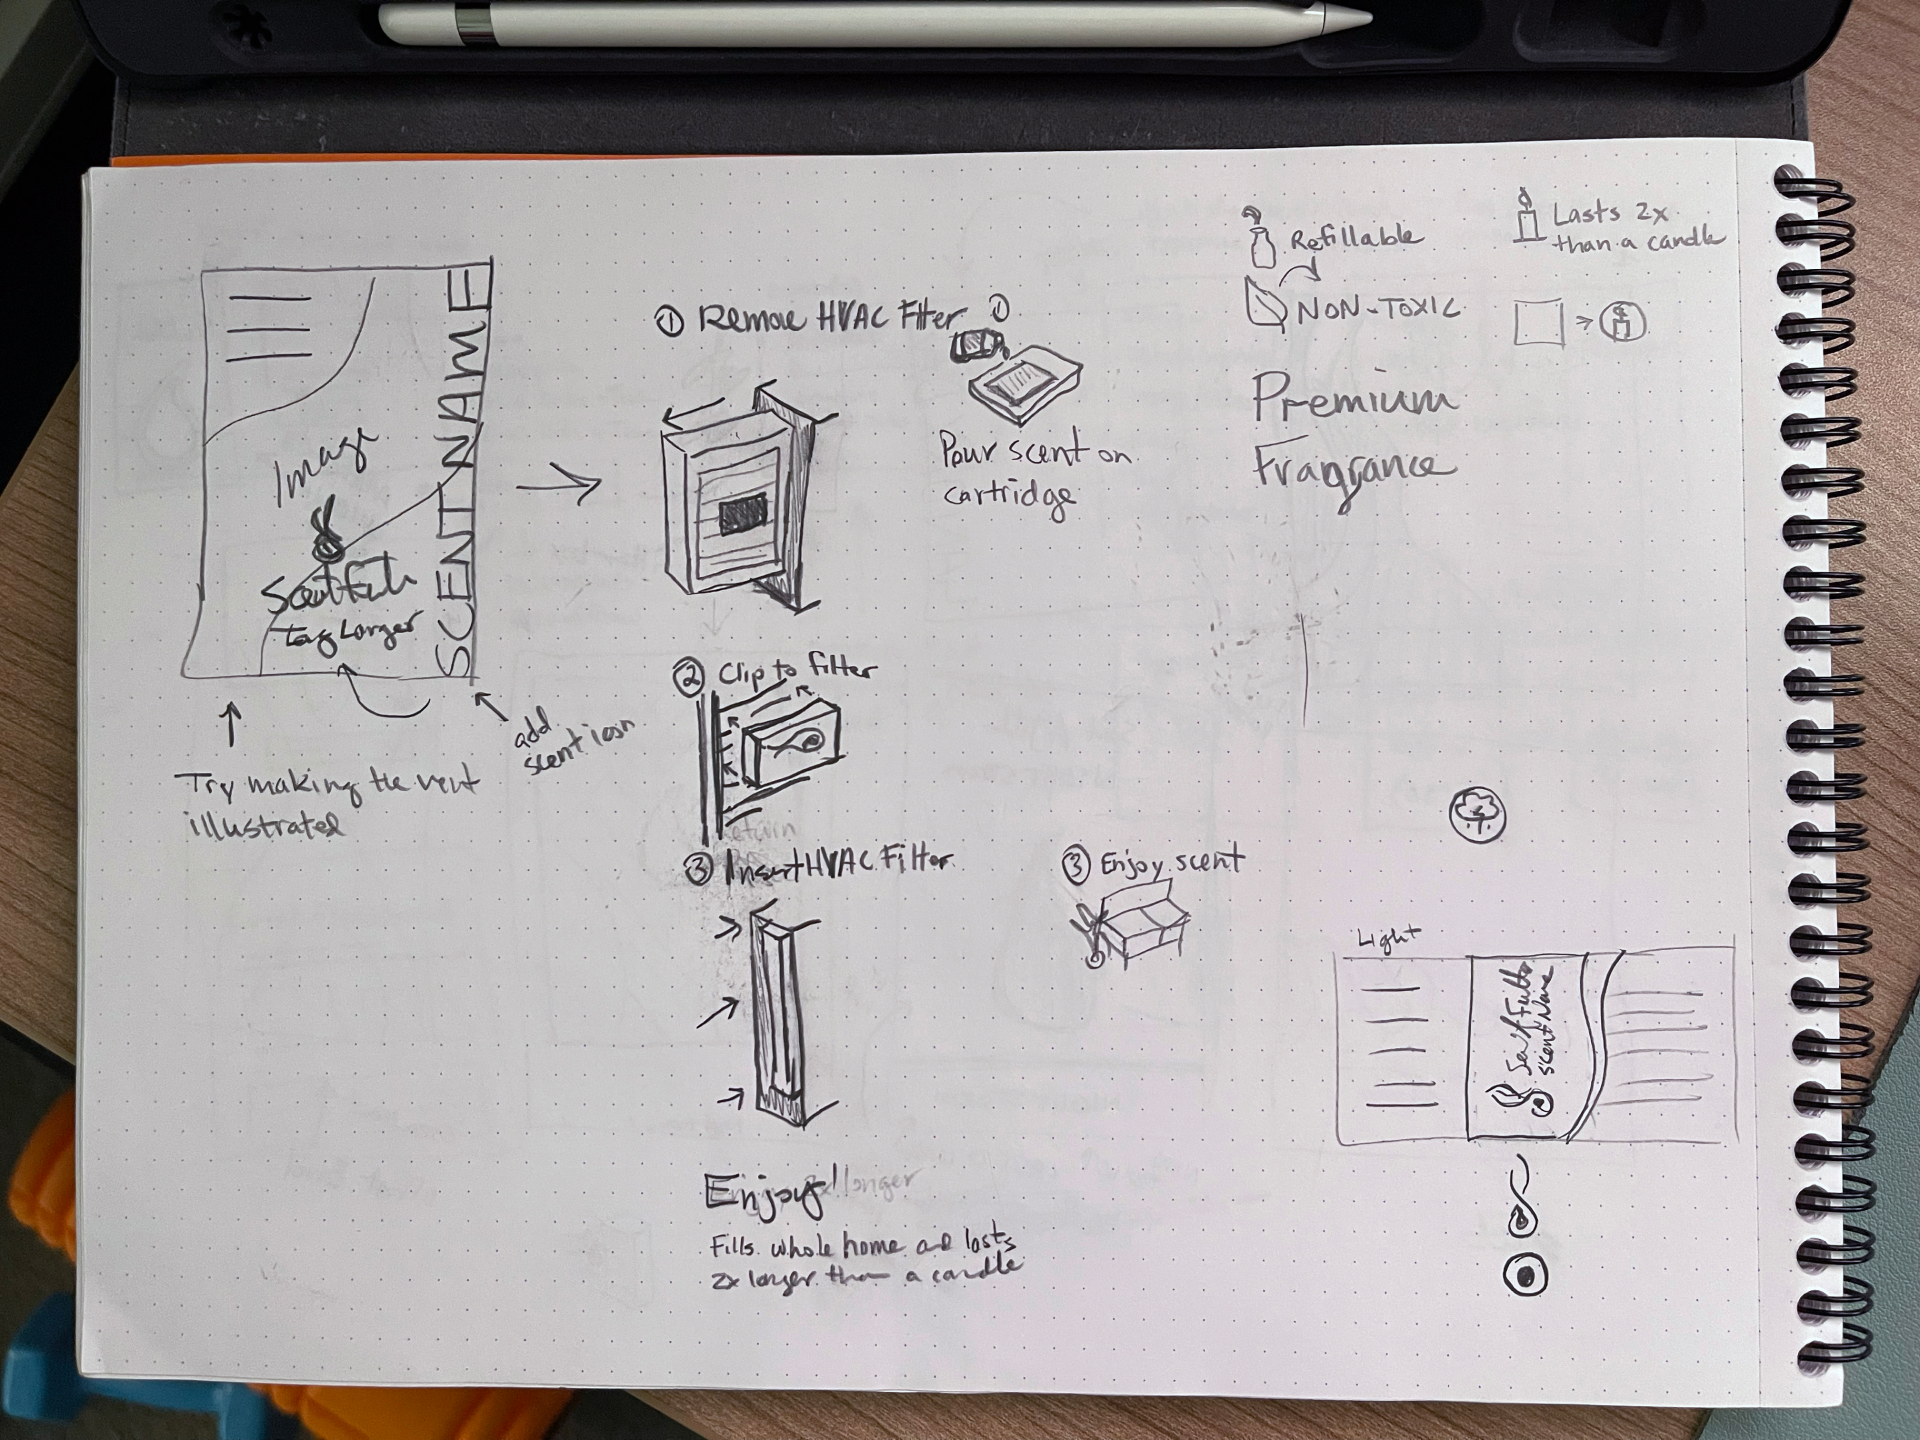 SCENT NAME
Image
Tag Larger
add
scent icon
Try making the vent
illustrated
① Remove HVAC Filter
①
Pour scent on
cartridge
② Clip to filter
Return
③ Insert HVAC Filter
③ Enjoy scent
Enjoy!
longer
Fills whole home and lasts
2x longer than a candle
Refillable
NON-TOXIC
Lasts 2x
than a candle
Premium
Fragrance
Light
Scent Name